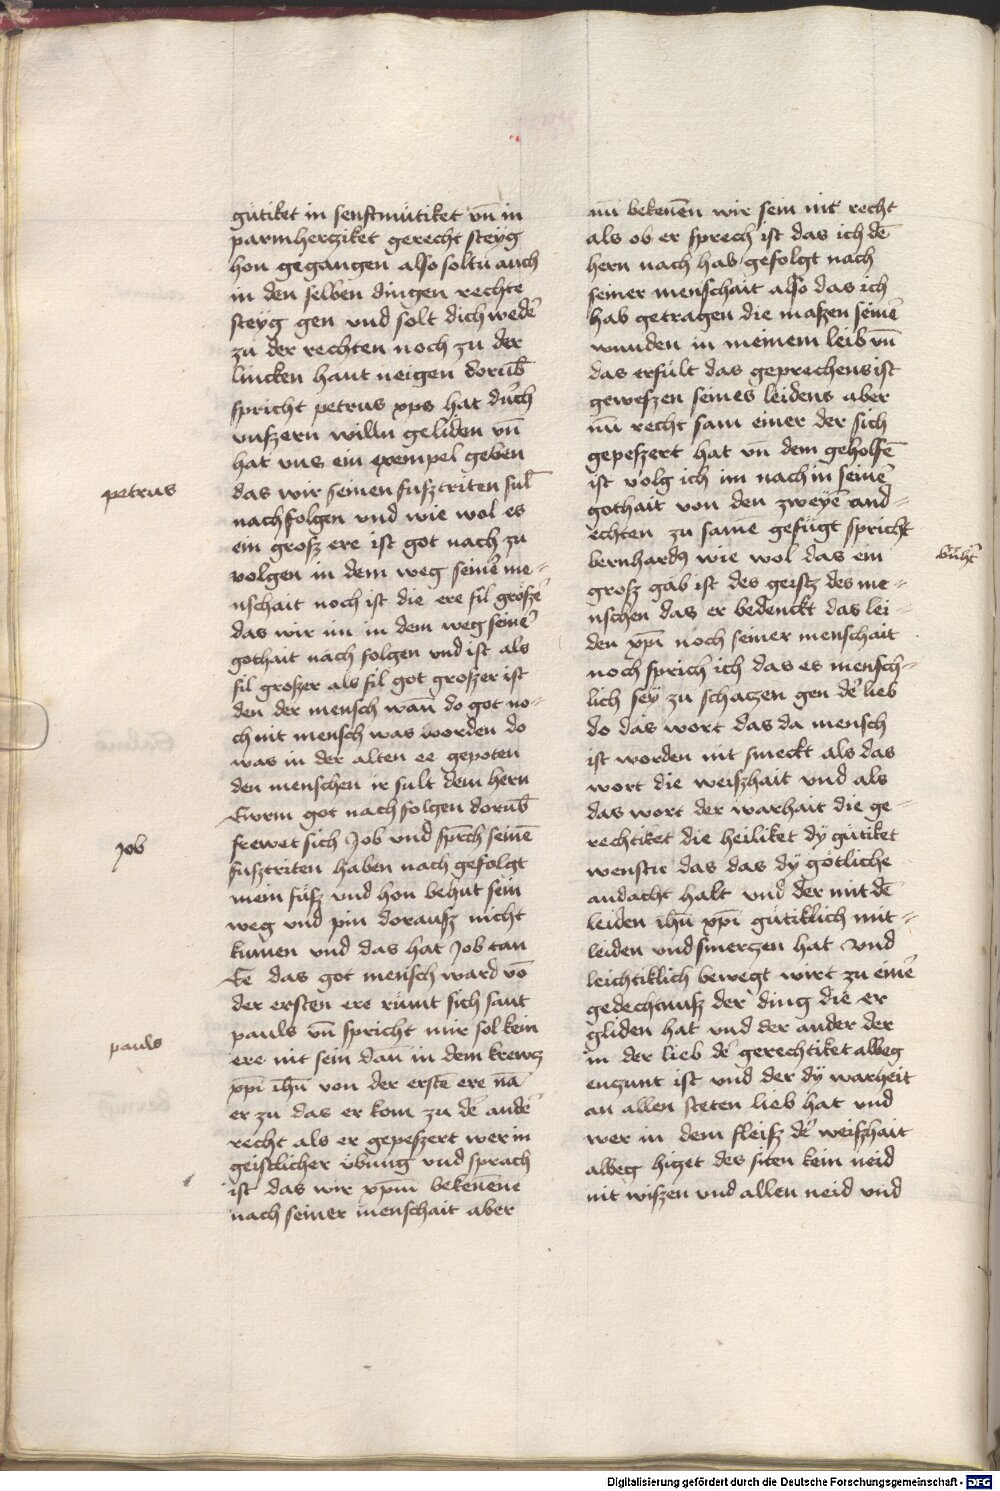 gütiket in senftmütiket vn̄ in
parmhercziket gerecht steyg
hon gegangen also soltu auch
in den selben dingen rechte
steyg gen vnd solt dich wedē
zu der rechten noch zu der
lincken hant neigen dorūb
spricht petrus xp̄s hat durch
vnszern willn geliden vn̄
hat vns ein exempel geben
petrus
das wir seinen fusztriten sul̄
nachfolgen vnd wie wol es
ein grosz ere ist got nach zu
volgen in dem weg seinē me-
nschait noch ist die ere fil groszē
das wir im in dem weg seinē
gothait nach folgen vnd ist als
fil groszer als fil got groszer ist
den der mensch wan̄ do got no-
ch nit mensch was worden do
was in der alten ee gepoten
den menschen ir sult dem hern
Ewrm got nach folgen dorūb
Job
frewet sich Job vnd sprch seinē
fusztriten haben nach gefolgt
mein füsz vnd hon behut sein
weg vnd pin dorausz nicht
kumen vnd das hat Job tan
Ee das got mensch ward vō
der ersten ere rümt sich sant
pauls
pauls vn̄ spricht mir sol kein
ere nit sein dan̄ in dem krewcz
xp̄i ih̄u von der erstē ere nā
er zu das er kom zu dē andē
recht als er gepeszert wer in
geistlicher übung vnd sprach
ist das wir xp̄m bekenēne
nach seiner menschait aber
nū bekenēn wir sein nit recht
als ob er sprech ist das ich dē
hern nach hab gefolgt nach
seiner menschait also das ich
hab getragen die maszen seinē
wunden in meinem leib vn̄
das erfült das geprechens ist
geweszen seines leidens aber
nū recht sam einer der sich
gepeszert hat vn̄ dem geholfē
ist volg ich im nach in seinē
gothait von den zweyē and-
echten zu samē gefügt spricht
bernhardꝰ wie wol das ein
grosz gab ist des geistz des me-
nschen das er bedenckt das lei-
den xp̄i noch seiner menschait
noch sprich ich das es mensch-
lich sey zu schatzen gen dē lieb
do das wort das da mensch
ist worden nit smeckt als das
wort die weiszhait vnd als
das wort der warhait die ge-
rechtiket die heiliket dy gütiket
wenstu das das dy götliche
andacht halt vnd der mit dē
leiden ih̄u xp̄i gütiklich mit-
leiden vnd smerczen hat vnd
leichtiklich bewegt wirt zu einē
gedechtnusz der ding die er
gliden hat vnd der ander der
in der lieb dē gerechtiket albeg
enzunt ist vnd der dy warheit
an allen steten lieb hat vnd
wer in dem fleisz dē weiszhait
albeg hiczet des siten kein neid
nit wiszen vnd allen neid vnd
Digitalisierung gefördert durch die Deutsche Forschungsgemeinschaft - DFG